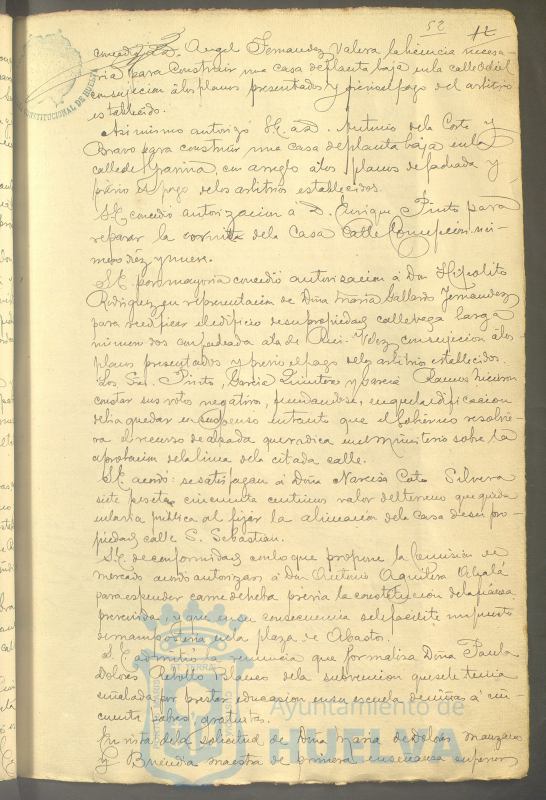 52
concedio a D. Angel Fernandez Valera la licencia necesa-
ria para construir una casa de planta baja en la calle Odiel
con sujecion á los planos presentados y previo el pago del arbitrio
establecido.
Asi mismo autorizó S.E. a D. Antonio de la Corte y
Bravo para construir una casa de planta baja en la
calle de Marina, con arreglo á los planos de fachada y
previo el pago de los arbitrios establecidos.
S.E. concedio autorizacion a D. Enrique Pinto para
reparar la cornisa de la Casa Calle Concepcion nú-
mero diez y nueve.
S.E. por mayoria concedió autorizacion á Don Hipolito
Rodriguez en representacion de Doña Maria Gallardo Fernandez
para reedificar el edificio de su propiedad calle vega larga
numero dos con fachada a la de Rui-Velez con sujecion á los
planos presentados y previo el pago de los arbitrios establecidos.
Los Sres. Pinto, Garcia Quintero y Garcia Ramos hicieron
constar sus votos negativos, fundandose, en que la edificacion
debia quedar en suspenso en tanto que el Gobierno resolvie-
ra el recurso de alzada que radica en el Ministerio sobre la
aprobacion de la linea de la citada calle.
S.E. acordó: se satisfagan á Doña Narcisa Cata Silvera
siete pesetas cincuenta centimos valor del terreno que queda
en la via pública al fijar la alineacion de la Casa de su pro-
piedad calle S. Sebastian.
S.E. de conformidad con lo que propone la Comision de
mercado acordó autorizar á Don Antonio Aguilera Alcalá
para espender carne de hebra previa la constitucion de la fianza
prevenida, y que en su consecuencia se le facilite un puesto
de mamposteria en la plaza de Abasto.
S.E. admitió la renuncia que formaliza Doña Paula
Dolores Rebollo Blanco de la subvencion que se le tenia
señalada por prestar educacion en su escuela de niñas á cin-
cuenta pobres gratuitas.
En vista de la solicitud de Doña Maria de Dolores Manzano
y Buendia maestra de primera enseñanza superior
CONSTITUCIONAL DE HUELVA
Ayuntamiento de
HUELVA